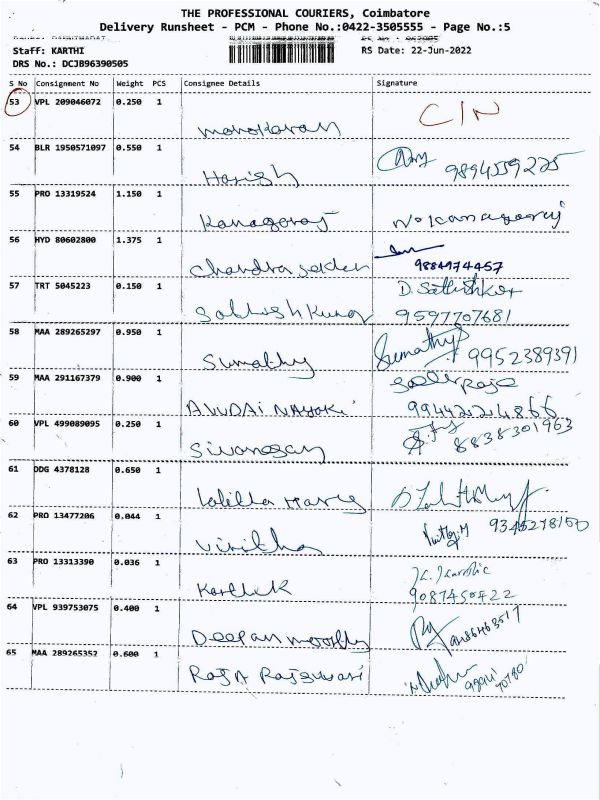 THE PROFESSIONAL COURIERS, Coimbatore
Delivery Runsheet - PCM - Phone No.:0422-3505555 - Page No.:5
Staff: KARTHI
RS Date: 22-Jun-2022
DRS No.: DCJB96390505
S No Consignment No Weight PCS Consignee Details Signature
53 VPL 209046072 0.250 1
Manokaran C/N
54 BLR 1950571097 0.550 1
Harish 9894559225
55 PRO 13319524 1.150 1
Kanagaraj N. Kanagaraj
56 HYD 80602800 1.375 1
Chandra sekher 9884974457
57 TRT 5045223 0.150 1 D. Sathishkar
Sathish kumar 9597707681
58 MAA 289265297 0.950 1
Sumathy Sumathy 9952389391
59 MAA 291167379 0.900 1
AVUDAI NAYAKI 9944224866
60 VPL 499089095 0.250 1 8838301963
Sivanesan
61 DDG 4378128 0.650 1
Lalitha
62 PRO 13477206 0.044 1
63 PRO 13313390 0.036 1
Karthik 9087450422
64 VPL 939753075 0.400 1
Deepan moorthy
65 MAA 289265352 0.600 1
Raja Rajeswari